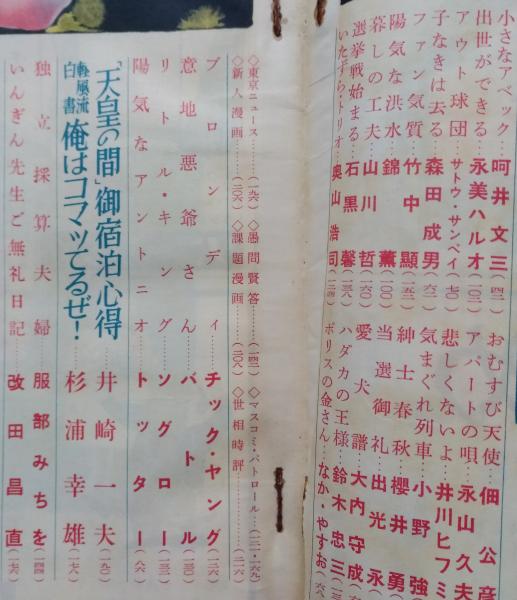 小さなアベック……呵井文三(四二)
出世ができる……永美ハルオ(一〇二)
アウト球団……サトウ・サンペイ(七〇)
子なきは去る……森田成男(六二)
ファン気質……竹中顯(一五二)
陽気な洪水……錦薫(一〇〇)
暮しの工夫……山川哲(一六〇)
選挙戦始まる……石黒馨(一三八)
いたずらトリオ……奥山浩司(一二四)
おむすび天使……佃公彦
アパートの唄……永山久夫
悲しくないよ……井川ヒフミ
気まぐれ列車……小野強
紳士春秋……櫻井勇
当選御礼……出光永
愛犬譜……大内守成
ハダカの王様……鈴木忠三
ポリスの金さん……なか・やすお
◇東京ニュース……(一九六) ◇愚問賢答……(一四二) ◇マスコミ・パトロール…(一二・一六九)
◇新人漫画……(二〇六) ◇課題漫画……(二〇八) ◇世相時評
ブロンディ……チック・ヤング(一二六)
意地悪爺さん……バトル(一三〇)
リトル・キング……ソグロー(一三二)
陽気なアントニオ……トッター(八六)
「天皇の間」御宿泊心得……井崎一夫(一九〇)
軽風流白書 俺はコマッてるぜ!……杉浦幸雄(一七八)
独立採算夫婦……服部みちを(一四四)
いんぎん先生ご無礼日記……改田昌直(一七六)